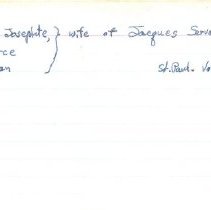 Josephte, } wife of Jacques Serv
rce
on
St. Paul.